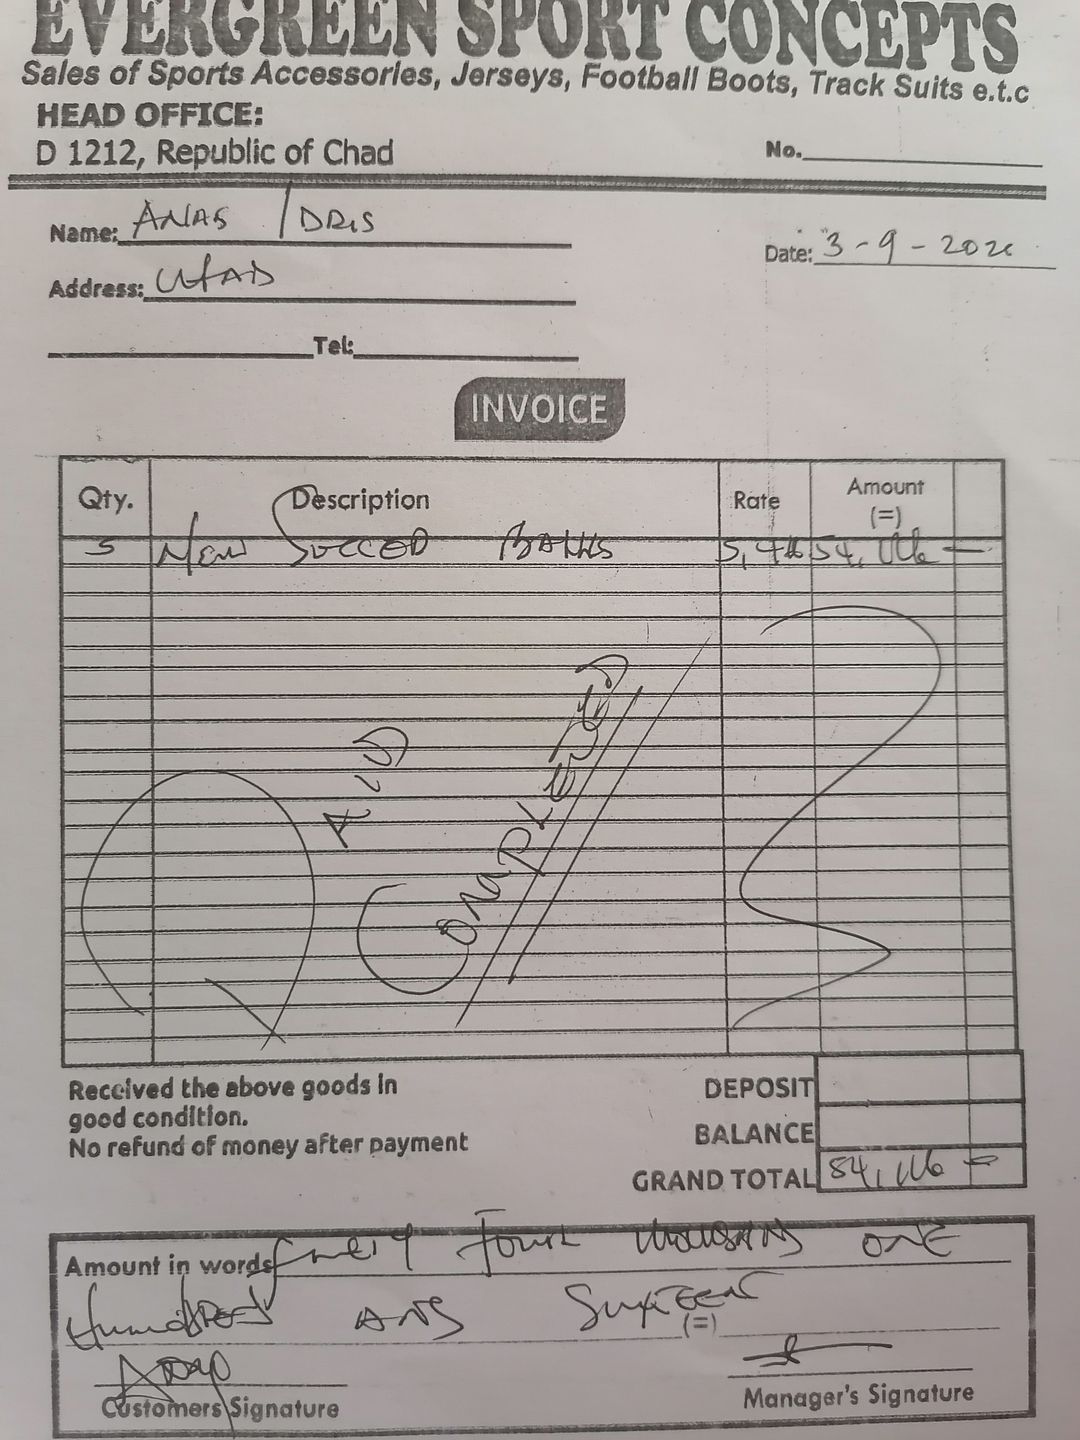 EVERGREEN SPORT CONCEPTS
Sales of Sports Accessories, Jerseys, Football Boots, Track Suits e.t.c
HEAD OFFICE:
D 1212, Republic of Chad
No.
Name: ANAS IDRIS
Date: 3-9-202
Address:
Tel:
INVOICE
Qty. Description Rate Amount
(=)
5 New
PAID
COMPLETED
Received the above goods in
good condition.
No refund of money after payment
DEPOSIT
BALANCE
GRAND TOTAL 54,116 =
Amount in words Four thousand ONE
Hundred AND Sixteen
(=)
Customers Signature
Manager's Signature